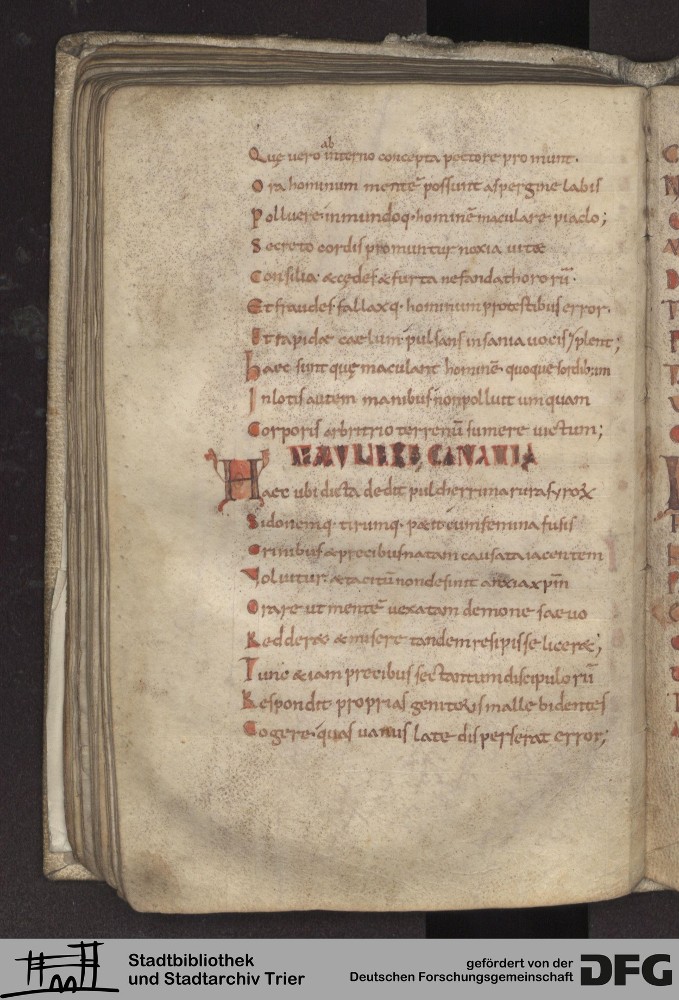 Quę vero ab interno concepta pectore promunt.
Ora hominum mentē possunt aspergine labis
Polluere. inmundoq. hominē maculare piaclo;
Secreto cordis promuntur noxia vitae
Consilia. & cędes & furta nefanda thororū.
Et fraudes. fallaxq. hominum pro testibus error.
Et rapidae caelum pulsans insania vocis;
Haec sunt quę maculant hominē. quoque sordib;
Inlotis autem manibus non polluit umquam
Corporis arbitrio terrenū sumere victum;
MULIERE CANANIA
Haec ubi dicta dedit pulcherrima rura
Sidonemq. tirumq. p&it cum femina fusis
Crinibus & precibus natam causata iacentem
Volvitur. & tacitū non desinit anxia xp̄m
Orare ut mentē vexatam demone saevo
Redder& & misere tandem resipisse licer&;
Tunc & iam precibus sectantum discipulorū
Respondit proprias genitoris malle bidentes
Cogere. quas vanus late disperserat error;
Stadtbibliothek
und Stadtarchiv Trier
gefördert von der
Deutschen Forschungsgemeinschaft
DFG